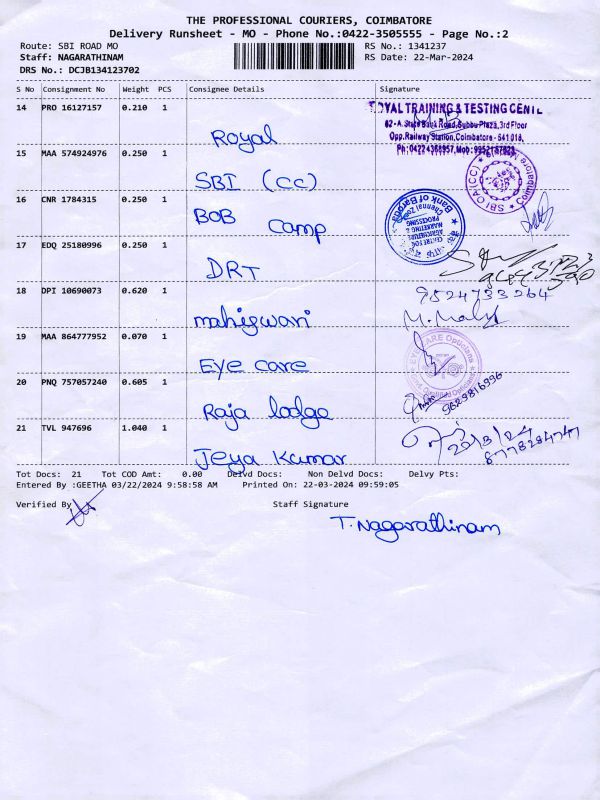 THE PROFESSIONAL COURIERS, COIMBATORE
Delivery Runsheet - MO - Phone No.:0422-3505555 - Page No.:2
Route: SBI ROAD MO
RS No.: 1341237
Staff: NAGARATHINAM
RS Date: 22-Mar-2024
DRS No.: DCJB134123702
S No Consignment No Weight PCS Consignee Details Signature
14 PRO 16127157 0.210 1
ROYAL TRAINING & TESTING
62-A, State Bank Road, Subbu Plaza, 3rd Floor
Opp. Railway Station, Coimbatore - 641 018,
Royal
15 MAA 574924976 0.250 1
SBI (CC)
16 CNR 1784315 0.250 1
Bank of Baroda
BOB camp
17 EDQ 25180996 0.250 1
DRT
18 DPI 10690073 0.620 1
9524733264
maheswari
19 MAA 864777952 0.070 1
EYE CARE Opticians
Eye care
20 PNQ 757057240 0.605 1
9629816996
Raja lodge
21 TVL 947696 1.040 1
8778284747
Jeya Kumar
Tot Docs: 21 Tot COD Amt: 0.00 Delvd Docs: Non Delvd Docs: Delvy Pts:
Entered By :GEETHA 03/22/2024 9:58:58 AM Printed On: 22-03-2024 09:59:05
Verified By
Staff Signature
T. Nagarathinam